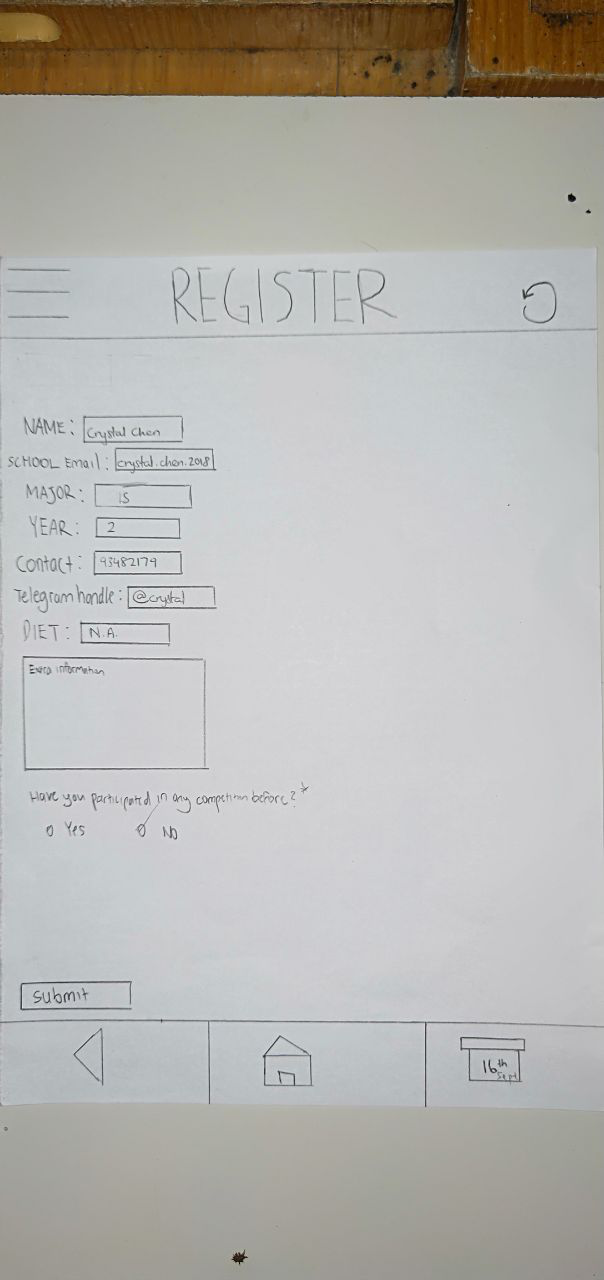 REGISTER
NAME: Crystal Chen
SCHOOL Email: crystal.chen.2018
MAJOR: IS
YEAR: 2
Contact: 93482179
Telegram handle: @crystal
DIET: N.A.
Extra information
Have you participated in any competition before?*
Yes No
submit
16th
Sept